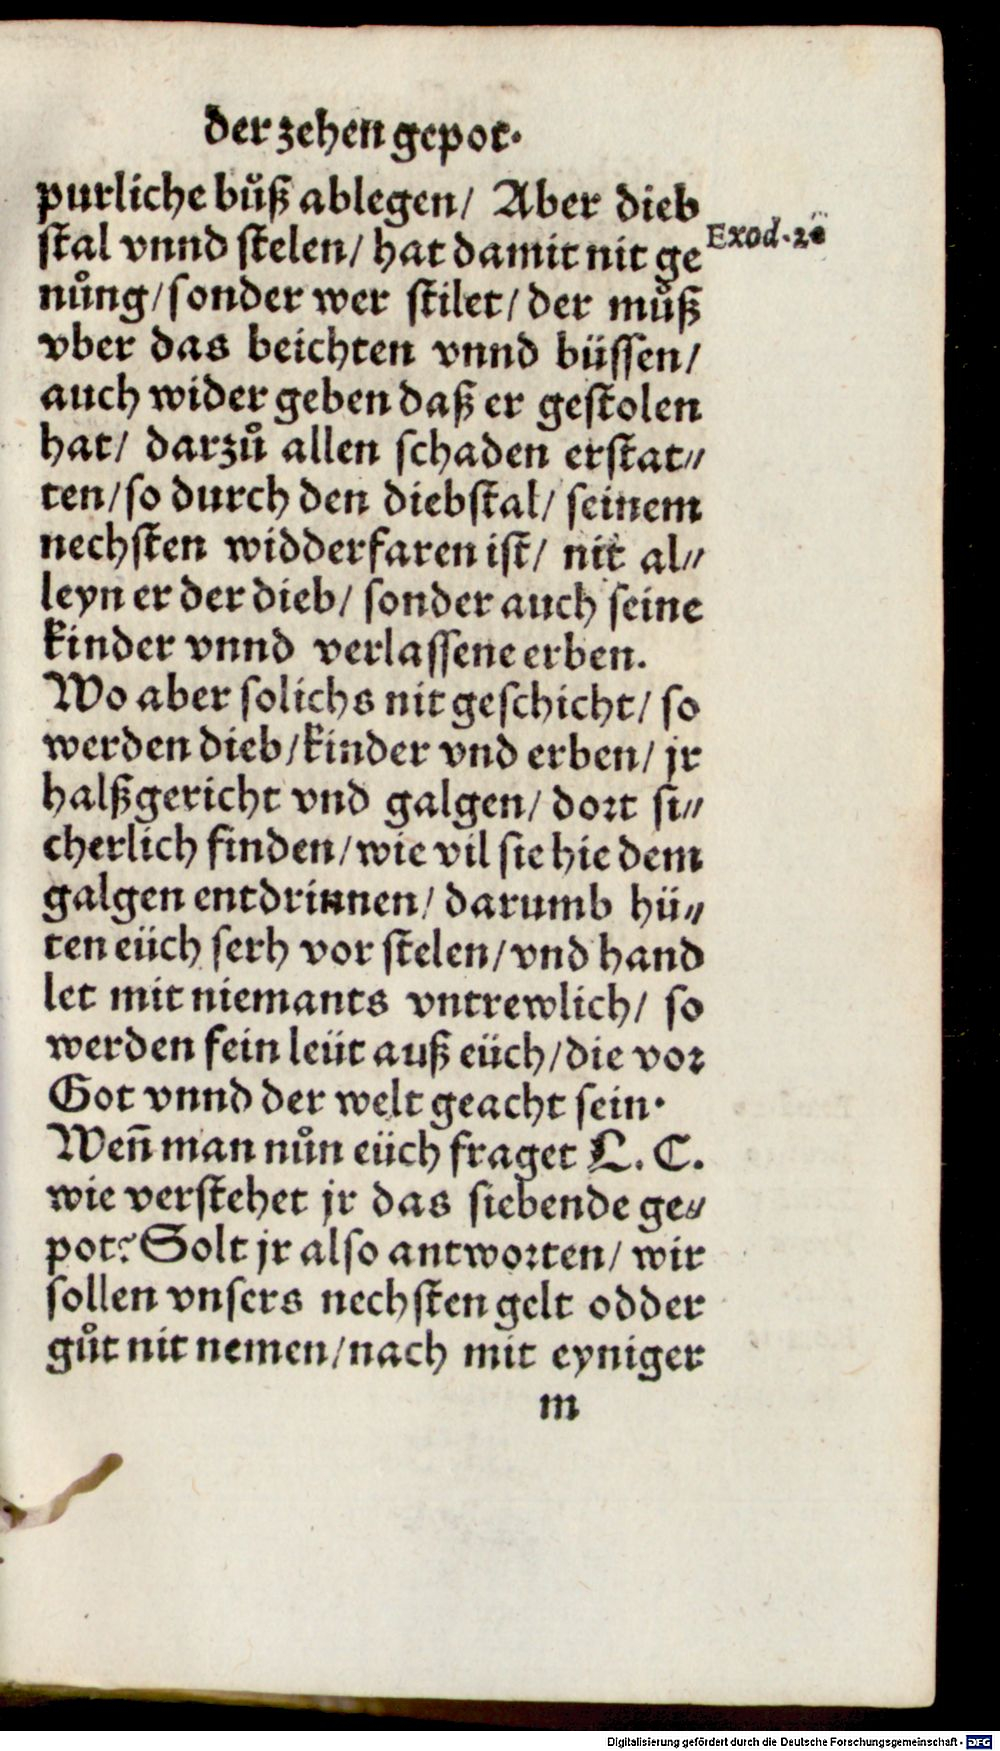 der zehen gepot.
purliche bůß ablegen/ Aber dieb
stal vnnd stelen/ hat damit nit ge
Exod.20
nůng/sonder wer stilet/der můß
vber das beichten vnnd büssen/
auch wider geben daß er gestolen
hat/ darzů allen schaden erstat⸗
ten/so durch den diebstal/ seinem
nechsten widderfaren ist/ nit al⸗
leyn er der dieb/ sonder auch seine
kinder vnnd verlassene erben.
Wo aber solichs nit geschicht/ so
werden dieb/kinder vnd erben/ jr
halßgericht vnd galgen/ dort si⸗
cherlich finden/wie vil sie hie dem
galgen entdrinnen/ darumb hü⸗
ten eüch serh vor stelen/vnd hand
let mit niemants vntrewlich/ so
werden fein leüt auß eüch/die vor
Got vnnd der welt geacht sein.
Weñ man nůn eüch fraget L. C.
wie verstehet jr das siebende ge⸗
pot? Solt jr also antworten/ wir
sollen vnsers nechsten gelt odder
gůt nit nemen/nach mit eyniger
m
Digitalisierung gefördert durch die Deutsche Forschungsgemeinschaft - DFG